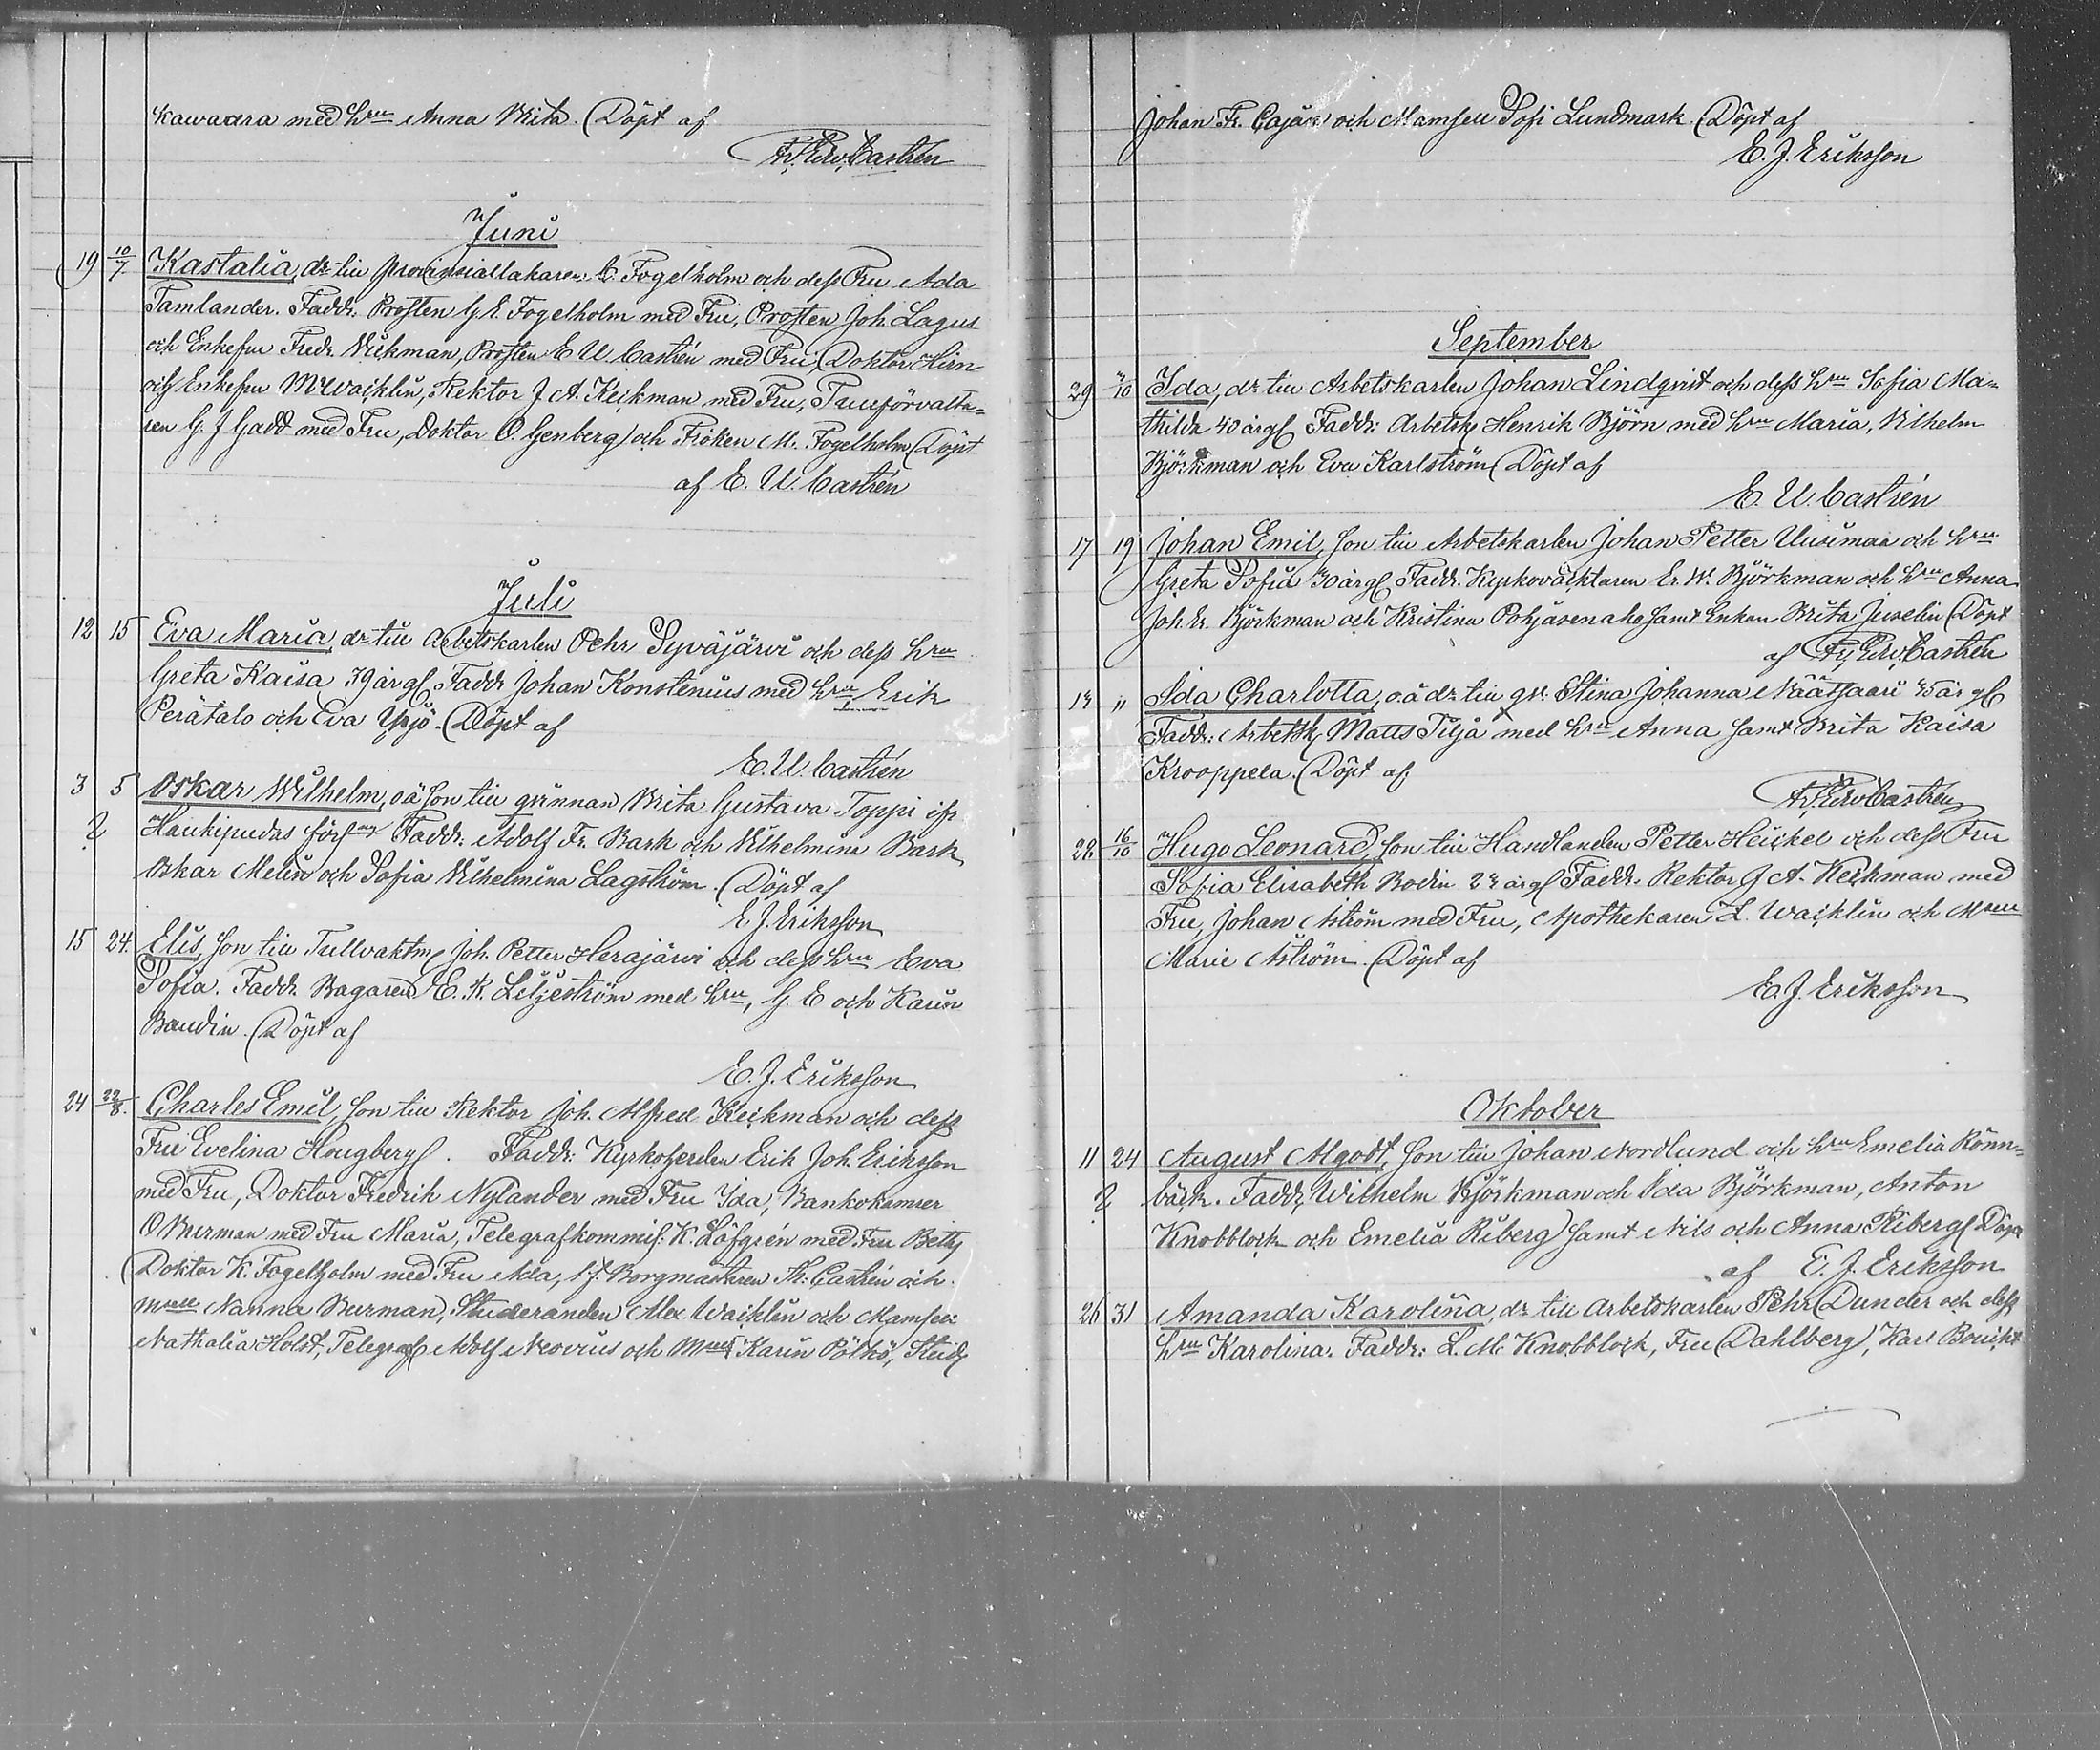 kawaara med hru Anna Brita. Döpt af
Fr. Edv. Castrén
Juni
19 10/7 Kastalia, dr till Provinsialläkaren K. Fogelholm och dess Fru Ada
Tamlander. Faddr: Prosten G. E. Fogelholm med Fru, Prosten Joh. Lagus
och Enkefru Fredr. Wickman, Prosten E U Castrén med Fru, Doktor Hirn
och Enkefru M Waicklin, Rektor J A. Keckman med Fru, Tullförvalta=
ren G. J Gadd med Fru, Doktor O. Genberg och Fröken M. Fogelholm Döpt
af E. U. Castrén
Juli
12 15 Eva Maria, dr till arbetskarlen Pehr Syväjärvi och dess hru
Greta Kaisa 39 årg. Faddr Johan Konstenius med hru, Erik
Perätalo och Eva Yrjö. Döpt af
E. U. Castrén
3 5 Oskar Wilhelm, oä son till qvinnan Brita Gustava Toppi ifr
Haukipudas förs. Faddr: Adolf Fr. Bark och Wilhelmina Bark,
Oskar Melin och Sofia Wilhelmina Lagström. Döpt af
E J. Eriksson
15 24. Elis, son till Tullvaktm. Joh. Petter Herajärvi och dess hru Eva
Sofia. Faddr. Bagaren E. R. Liljeström med hru, G. E och Karin
Baudin. Döpt af
E. J. Eriksson
24 22/8. Charles Emil, son till Rektor Joh. Alfred Keckman och dess
Fru Evelina Hougberg. Faddr: Kyrkoherden Erik Joh. Eriksson
med Fru, Doktor Fredrik Nylander med Fru Ida, Bankokamrer
O Burman med Fru Maria, Telegrafkommis: K. Löfgrén med Fru Betty
Doktor K. Fogelholm med Fru Ada, t.f. Borgmästaren Th: Castrén och
Mmll Nanna Burman, Studeranden Alex. Waicklin och Mamsell
Nathalia Holst, Telegraf. Adolf Neovius och Mmll Karin Pölhö, Stud.
Johan Fr. Cajan och Mamsell Sofi Lundmark. Döpt af
E. J. Eriksson
September
29 /10 Ida, dr till Arbetskarlen Johan Lindqvist och dess hru Sofia Ma=
thilda 40 årg. Faddr: Arbetsk. Henrik Björn med hru Maria, Wilhelm
Björkman och Eva Karlström Döpt af
E. U. Castrén
17 19 Johan Emil, son till Arbetskarlen Johan Petter Uusimaa och hru
Greta Sofia 30 årg. Faddr. Kyrkoväktaren Er. W. Björkman och hru Anna
Joh. Er. Björkman och Kristina Pohjasenaho samt Enkan Brita Juselin Döpt
af Fr. Edv. Castrén
14 " Ida Charlotta, o.ä dr till qv. Stina Johanna Näätsaari 45 år g.
Faddr: Arbetsk. Matts Piljä med hru Anna samt Brita Kaisa
Krooppela. Döpt af.
Fr. Edv. Castrén
28 16/10 Hugo Leonard, son till Handlanden Petter Heickel och dess Fru
Sofia Elisabeth Bodin 24 årg. Faddr. Rektor J A. Keckman med
Fru, Johan Aström med Fru, Apothekaren L. Waicklin och Msell
Marie Aström. Döpt af
E. J. Eriksson
Oktober
11 24 August Algodt, son till Johan Nordlund och hru Emelia Rönn=
bäck. Faddr. Wilhelm Björkman och Ida Björkman, Anton
Knobblock och Emelia Riberg samt Nils och Anna Riberg. Döpt
af E. J. Eriksson
26 31 Amanda Karolina, dr till arbetskarlen Pehr Duncker och dess
hru Karolina. Faddr: L. M. Knobblock, Fru Dahlberg, Karl Boucht